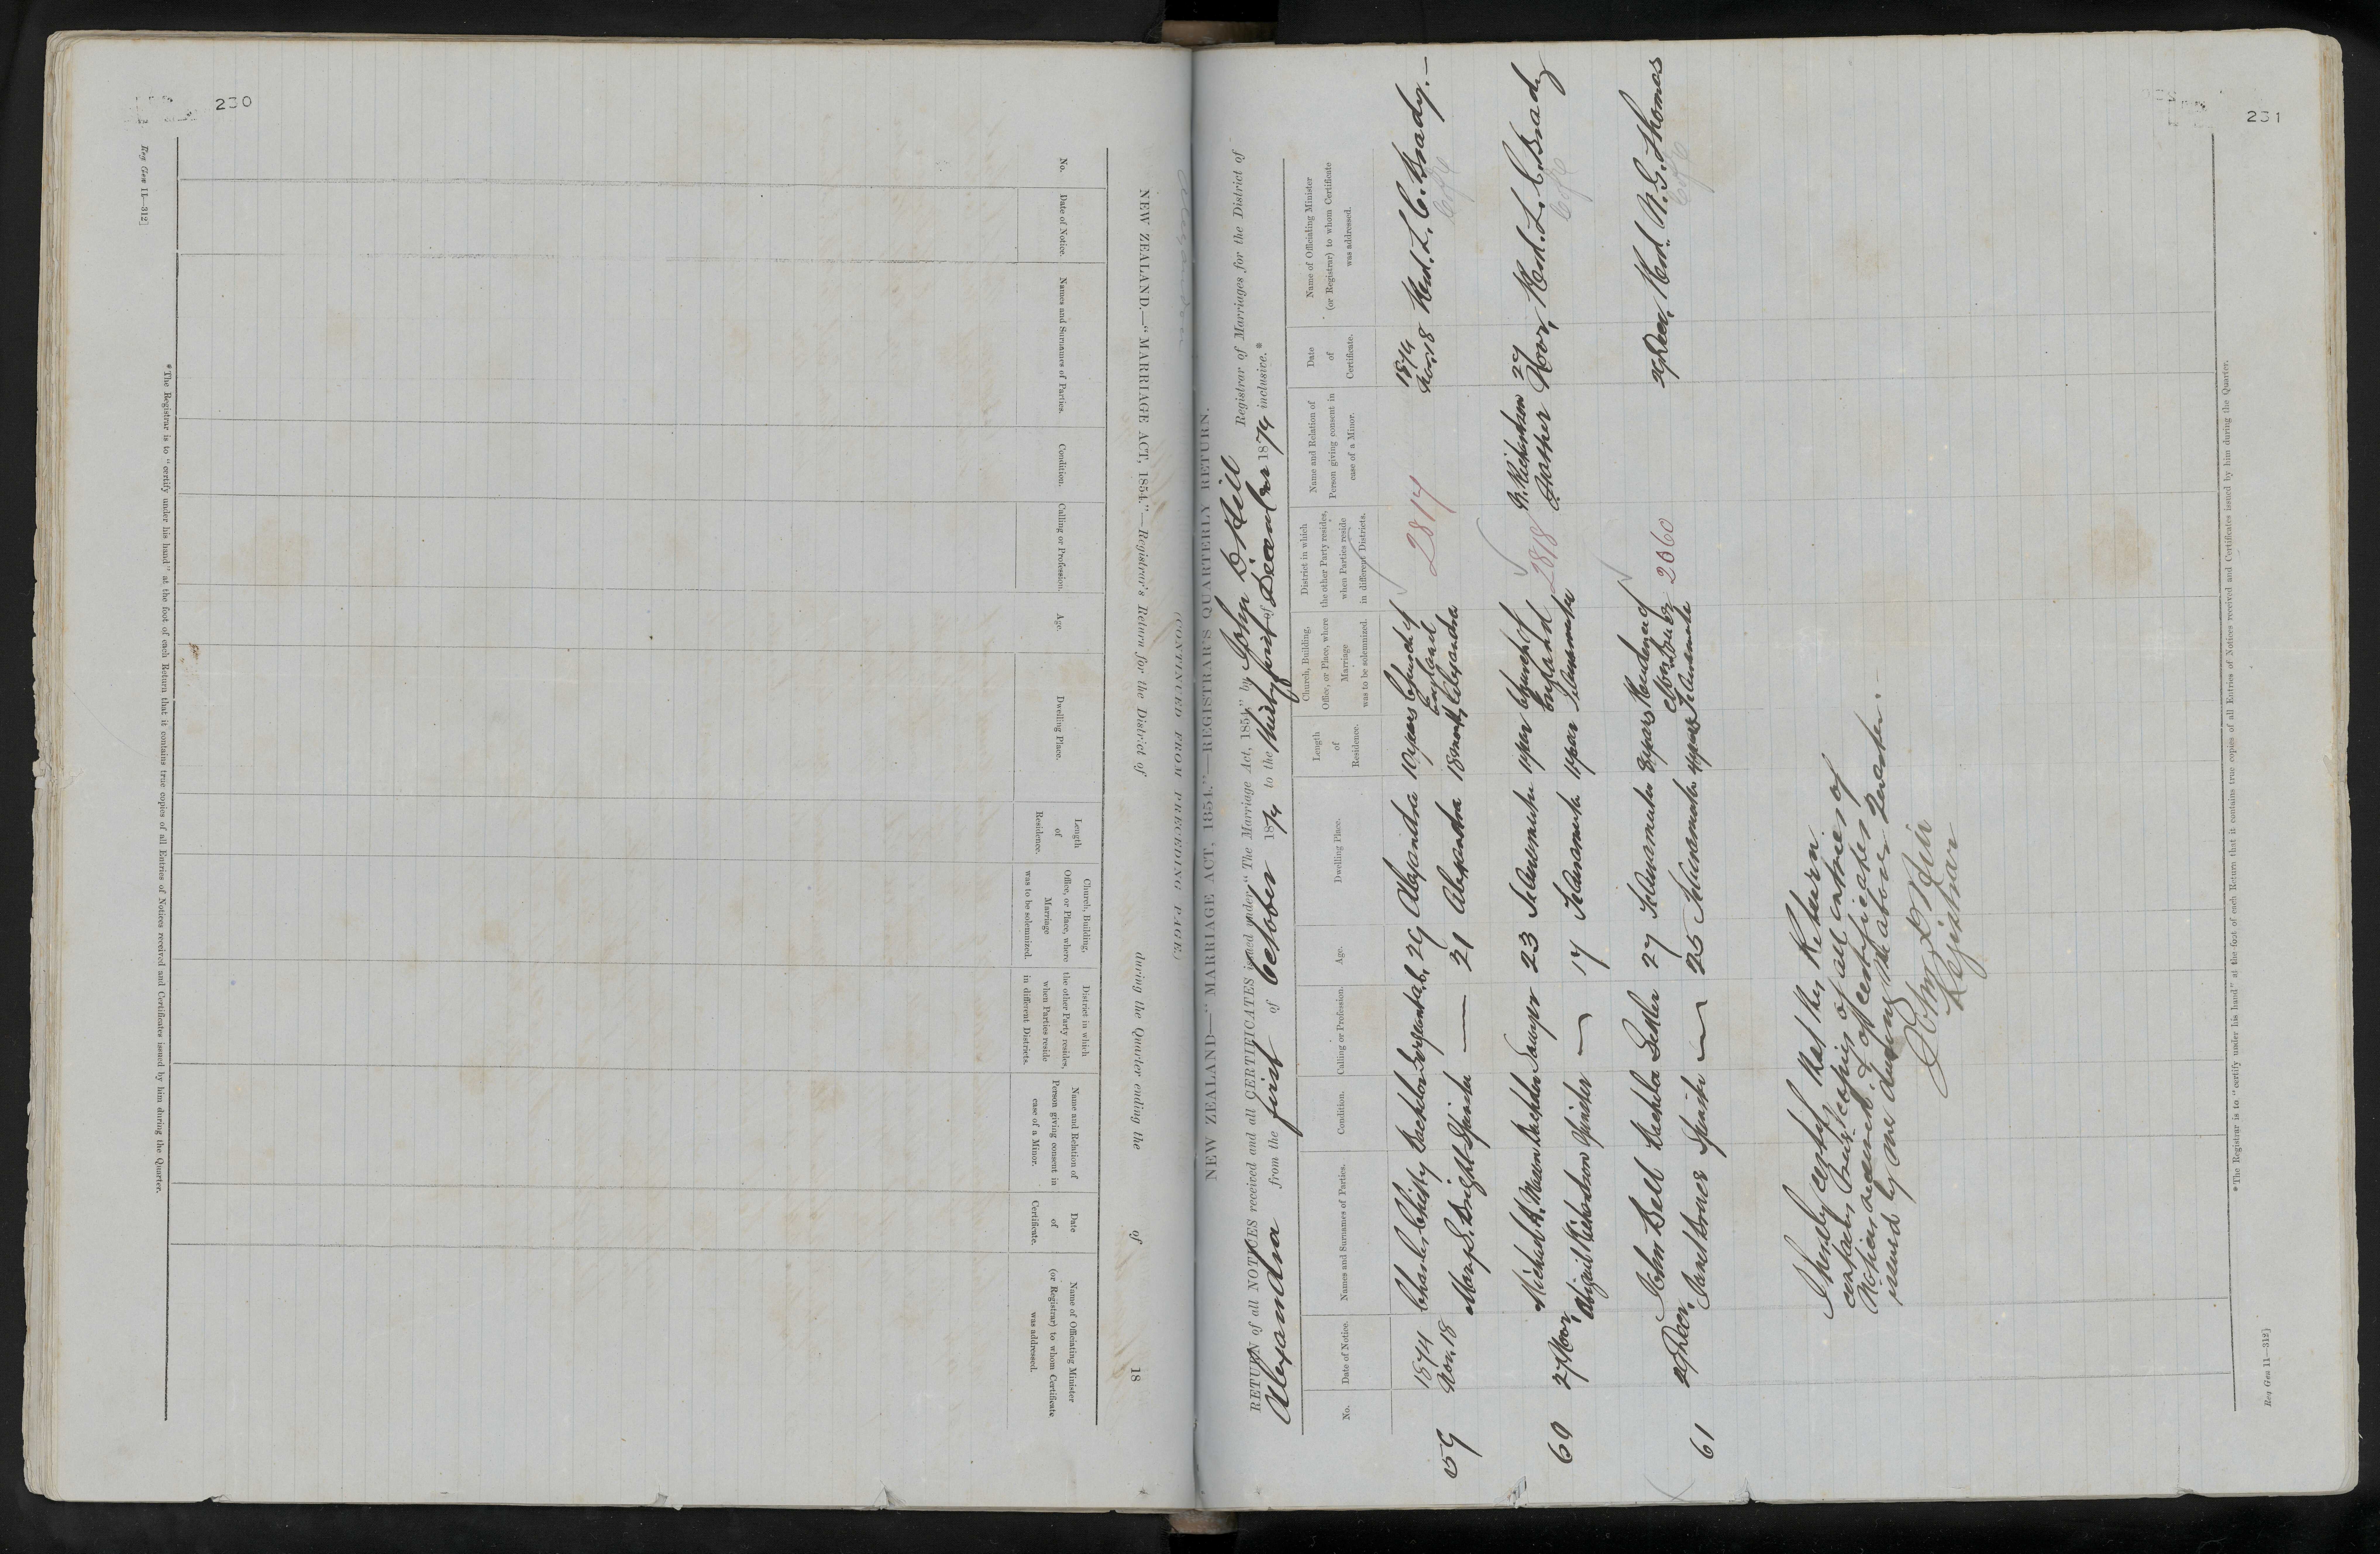 230
Reg Gen 11—312]
NEW ZEALAND.—"MARRIAGE ACT, 1854."—Registrar's Return for the District of during the Quarter ending the of 18
(CONTINUED FROM PRECEDING PAGE)
No.
Date of Notice.
Names and Surnames of Parties.
Condition.
Calling or Profession.
Age.
Dwelling Place.
Length of Residence.
Church, Building, Office, or Place, where Marriage was to be solemnized.
District in which the other Party resides, when Parties reside in different Districts.
Name and Relation of Person giving consent in case of a Minor.
Date of Certificate.
Name of Officiating Minister (or Registrar) to whom Certificate was addressed.
*The Registrar is to "certify under his hand" at the foot of each Return that it contains true copies of all Entries of Notices received and Certificates issued by him during the Quarter.
231
NEW ZEALAND—"MARRIAGE ACT, 1854."—REGISTRAR'S QUARTERLY RETURN.
RETURN of all NOTICES received and all CERTIFICATES issued under "The Marriage Act, 1854," by John D Hill Registrar of Marriages for the District of
Alexandra from the first of October 1874 to the thirty first of December 1874 inclusive.*
No.
Date of Notice.
Names and Surnames of Parties.
Condition.
Calling or Profession.
Age.
Dwelling Place.
Length of Residence.
Church, Building, Office, or Place, where Marriage was to be solemnized.
District in which the other Party resides, when Parties reside in different Districts.
Name and Relation of Person giving consent in case of a Minor.
Date of Certificate.
Name of Officiating Minister (or Registrar) to whom Certificate was addressed.
59 1874 Nov. 18 Charles Chitty Bachelor 29 Alexandra 10 years Church of England Alexandra 2817 1874 Nov. 18 Revd. L. C. Brady.—
C of E
Mary S. Bright Spinster — 21 Alexandra 18 months
60 27 Novr. Michael R. Bachelor Sawyer 23 1 year Church of England 2818 Richardson Father 27 Novr. Revd. L. C. Brady
C of E
Abigail Richardson Spinster — 17 1 year
61 29 Decr. John Bell Bachelor Settler 27 3 years Residence of 2060 29 Decr. Revd. N. G. Thomas
C of E
Janet Bruce Spinster — 25 4 years
I hereby certify that this Return
contains true copies of all entries of
Notices received & of certificates
issued by me during the above Quarter.—
John D Hill
Registrar
*The Registrar is to "certify under his hand" at the foot of each Return that it contains true copies of all Entries of Notices received and Certificates issued by him during the Quarter.
Reg Gen 11—312]